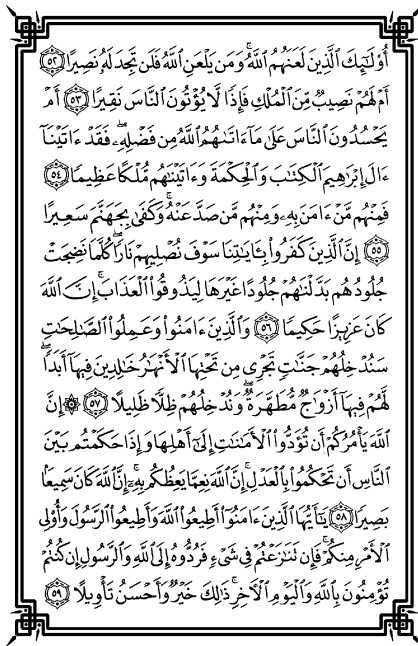 أُوْلَٰٓئِكَ ٱلَّذِينَ لَعَنَهُمُ ٱللَّهُۖ وَمَن يَلْعَنِ ٱللَّهُ فَلَن تَجِدَ لَهُۥ نَصِيرًا ٥٢
أَمْ لَهُمْ نَصِيبٌ مِّنَ ٱلْمُلْكِ فَإِذًا لَّا يُؤْتُونَ ٱلنَّاسَ نَقِيرًا ٥٣ أَمْ
يَحْسُدُونَ ٱلنَّاسَ عَلَىٰ مَآ ءَاتَىٰهُمُ ٱللَّهُ مِن فَضْلِهِۦۖ فَقَدْ ءَاتَيْنَآ
ءَالَ إِبْرَٰهِيمَ ٱلْكِتَٰبَ وَٱلْحِكْمَةَ وَءَاتَيْنَٰهُم مُّلْكًا عَظِيمًا ٥٤
فَمِنْهُم مَّنْ ءَامَنَ بِهِۦ وَمِنْهُم مَّن صَدَّ عَنْهُۚ وَكَفَىٰ بِجَهَنَّمَ سَعِيرًا
٥٥ إِنَّ ٱلَّذِينَ كَفَرُواْ بِـَٔايَٰتِنَا سَوْفَ نُصْلِيهِمْ نَارًا كُلَّمَا نَضِجَتْ
جُلُودُهُم بَدَّلْنَٰهُمْ جُلُودًا غَيْرَهَا لِيَذُوقُواْ ٱلْعَذَابَۗ إِنَّ ٱللَّهَ
كَانَ عَزِيزًا حَكِيمًا ٥٦ وَٱلَّذِينَ ءَامَنُواْ وَعَمِلُواْ ٱلصَّٰلِحَٰتِ
سَنُدْخِلُهُمْ جَنَّٰتٍ تَجْرِى مِن تَحْتِهَا ٱلْأَنْهَٰرُ خَٰلِدِينَ فِيهَآ أَبَدًاۖ
لَّهُمْ فِيهَآ أَزْوَٰجٌ مُّطَهَّرَةٌۖ وَنُدْخِلُهُمْ ظِلًّا ظَلِيلًا ٥٧ ۞ إِنَّ
ٱللَّهَ يَأْمُرُكُمْ أَن تُؤَدُّواْ ٱلْأَمَٰنَٰتِ إِلَىٰٓ أَهْلِهَا وَإِذَا حَكَمْتُم بَيْنَ
ٱلنَّاسِ أَن تَحْكُمُواْ بِٱلْعَدْلِۚ إِنَّ ٱللَّهَ نِعِمَّا يَعِظُكُم بِهِۦٓۗ إِنَّ ٱللَّهَ كَانَ سَمِيعًۢا
بَصِيرًا ٥٨ يَٰٓأَيُّهَا ٱلَّذِينَ ءَامَنُوٓاْ أَطِيعُواْ ٱللَّهَ وَأَطِيعُواْ ٱلرَّسُولَ وَأُوْلِى
ٱلْأَمْرِ مِنكُمْۖ فَإِن تَنَٰزَعْتُمْ فِى شَىْءٍ فَرُدُّوهُ إِلَى ٱللَّهِ وَٱلرَّسُولِ إِن كُنتُمْ
تُؤْمِنُونَ بِٱللَّهِ وَٱلْيَوْمِ ٱلْأَخِرِۚ ذَٰلِكَ خَيْرٌ وَأَحْسَنُ تَأْوِيلًا ٥٩